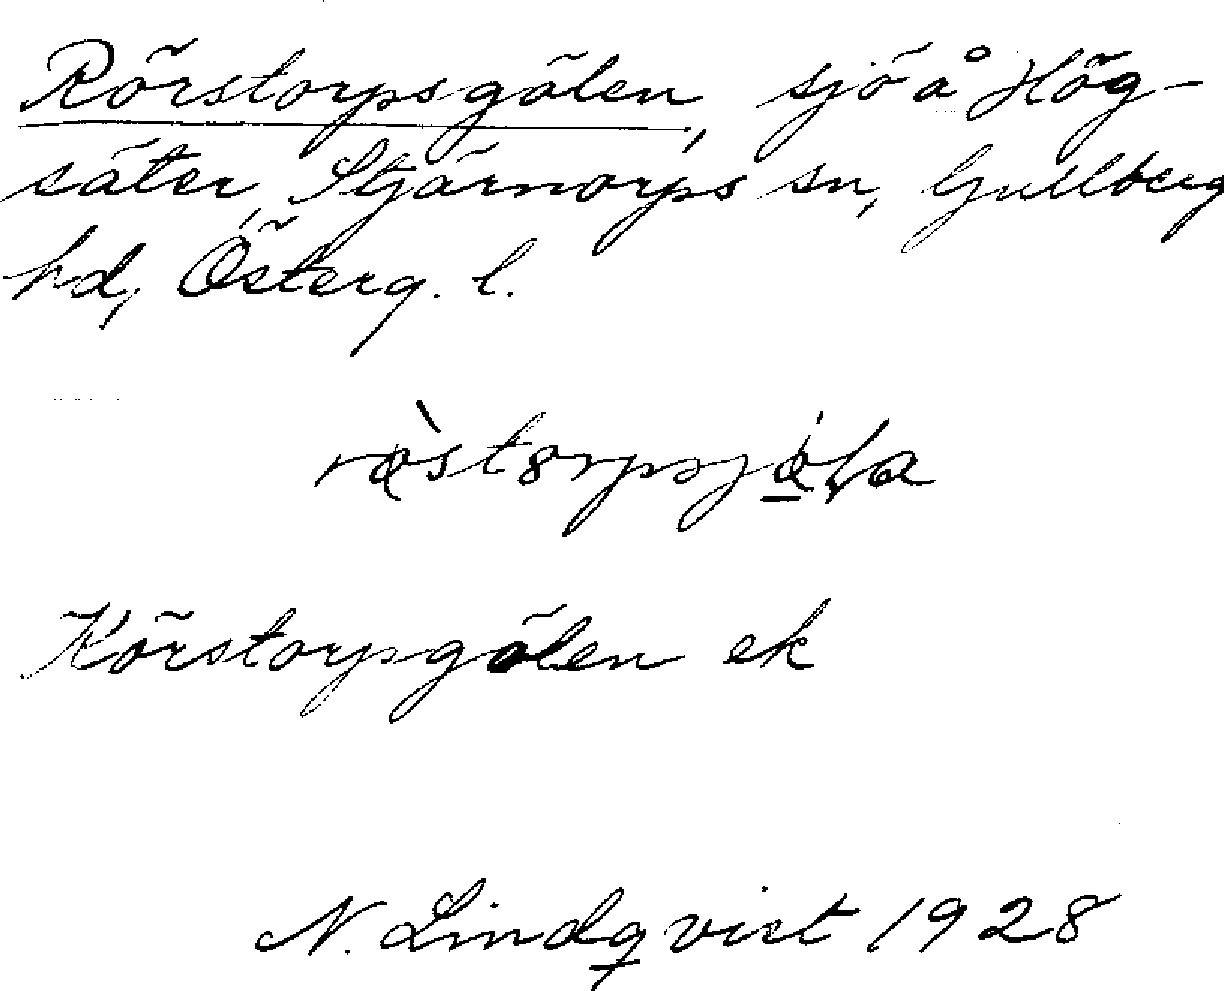 Rörstorpsgölen, sjö å Hög-
säter, Stjärnorps sn, Gullberg
hd, Österg. l.
Körstorpsgölen ek
N. Lindqvist 1928